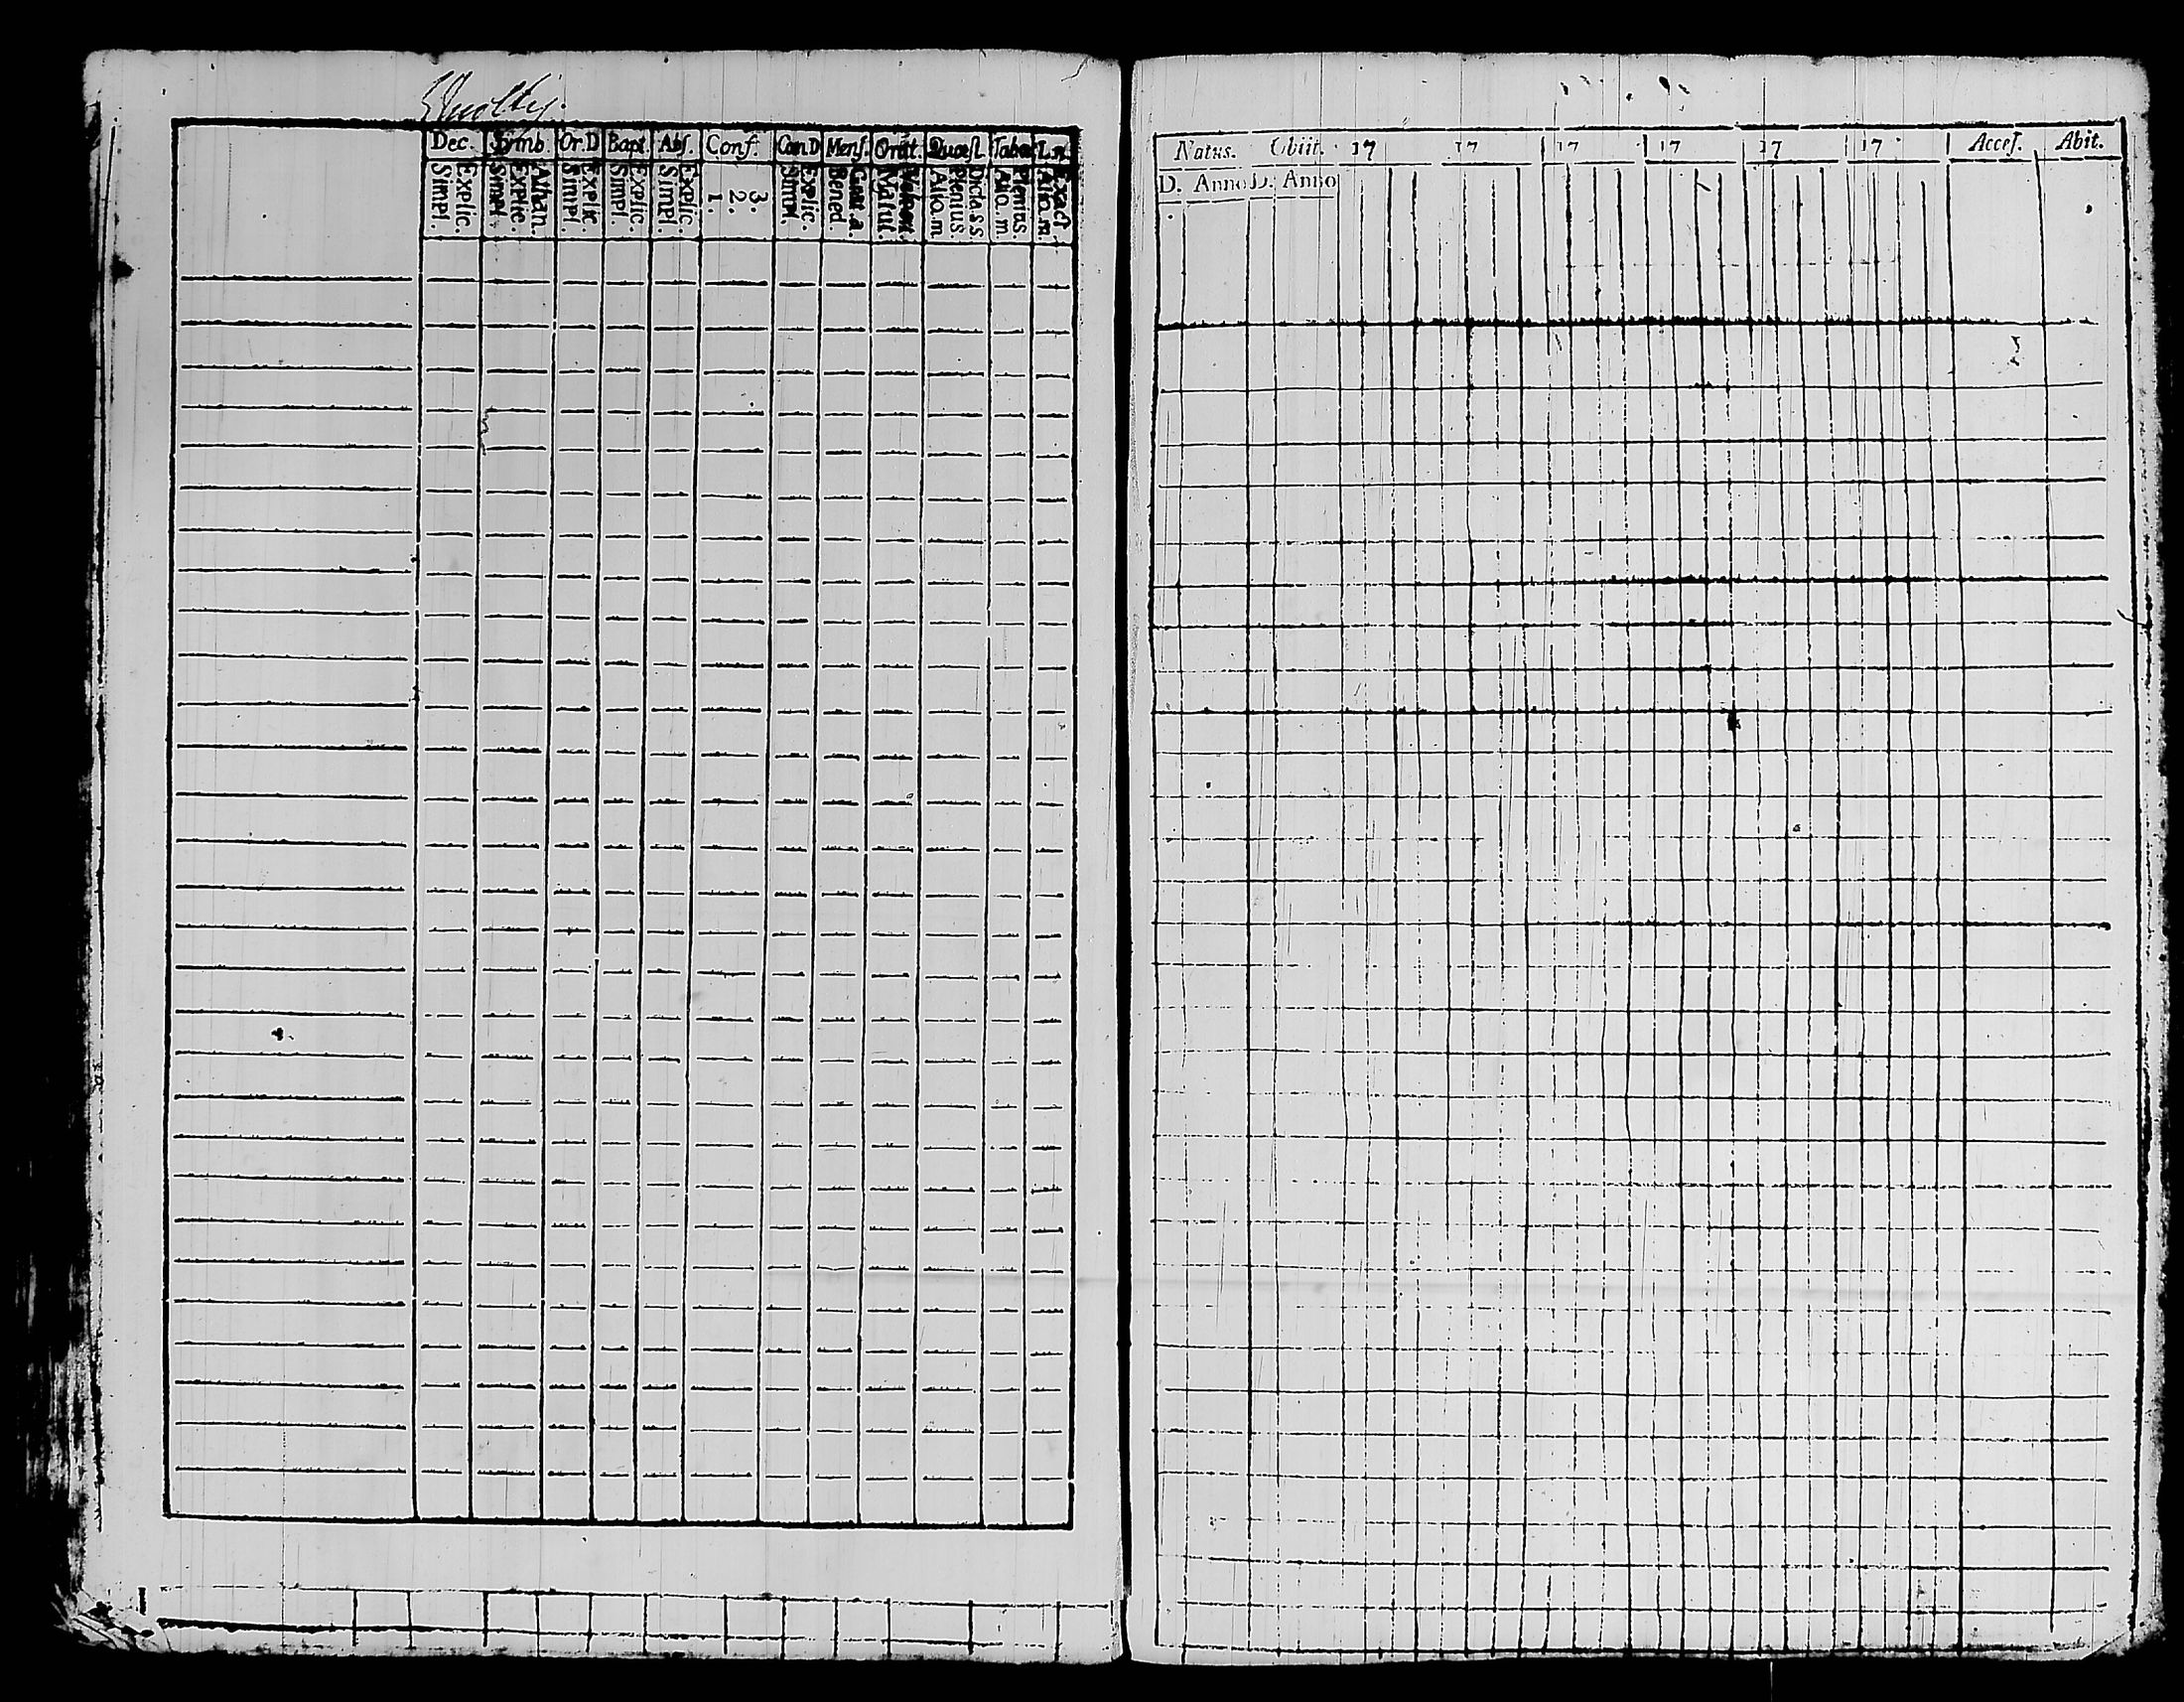 Dec. Symb. Or.D Bapt. Abs. Conf. Cœn.D Mens. Orat. Quæst. Tabœ L.n.
Explic. Simpl.
Athan. Explic. Simpl.
Explic. Simpl.
Explic. Simpl.
Explic. Simpl.
3. 2. 1.
Explic. Simpl.
Grat. a. Bened.
Vespert. Matut.
Dicta s.s. Plenius. Aliq.m
Plenius. Aliq.m.
Exact. Aliq.m.
Natus. Obiit. 17 17 17 17 17 17 Acces. Abit.
D. Anno D. Anno